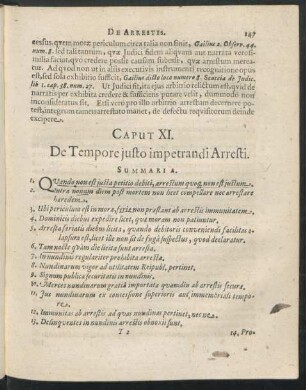 DE ARRESTIS. 147
cessus, quem moræ periculum circa talia non sinit, Gailius 2. Observ. 44.
num. 8. sed tali tantum, quæ Judici fidem aliquam aut narrata verosi-
milia faciat, quo credere possit causam subesse, quæ arrestum merea-
tur. Ad quod non ut in aliis executivis instrumenti recognitione opus
est, sed sola exhibitio sufficit,
lib. 1. cap. 38. num. 27. Ut Judici sit, in ejus arbitrio relictum est, quid de
narratis per exhibita credere & sufficientis putare velit, dummodo non
inconsideratius sit. Etsi vero pro illo arbitrio arrestum decernere po-
test, integrum tamen arrestato manet, de defectu requisitorum deinde
excipere.
CAPUT XI.
De Tempore justo impetrandi Arresti.
SUMMARIA.
1. Quando non est justa petitio debiti, arrestum quoq; non est justum.
2. Intra nonum diem post mortem non licet compellare nec arrestare
haredem.
3. Ubi periculum est in mora, feriæ non prestant ab arrestis immunitatem.
4. Dominico diebus expedire licet, quæ moram non patiuntur.
5. Arresta feriatis diebus licita, quando debitoris conveniendi facultas
elapsura est, licet ille non sit de fuga suspectus, quod declaratur.
6. Tam nocte quam die licita sunt arresta.
7. In nundinis regulariter prohibita arresta.
8. Nundinarum vigor ad utilitatem Reipubl. pertinet.
9. Signum publicæ securitatis in nundinis.
10. Merces nundinarum gratia importata quomodo ab arrestis secura.
11. Jus nundinarum ex concessione superioris aut immemoriali tempo-
re.
12. Immunitas ab arrestis ad quas nundinas pertinet, nec ne.
13. Delinquentes in nundinis arrestis obnoxii sunt.
T 2 14. Pro-